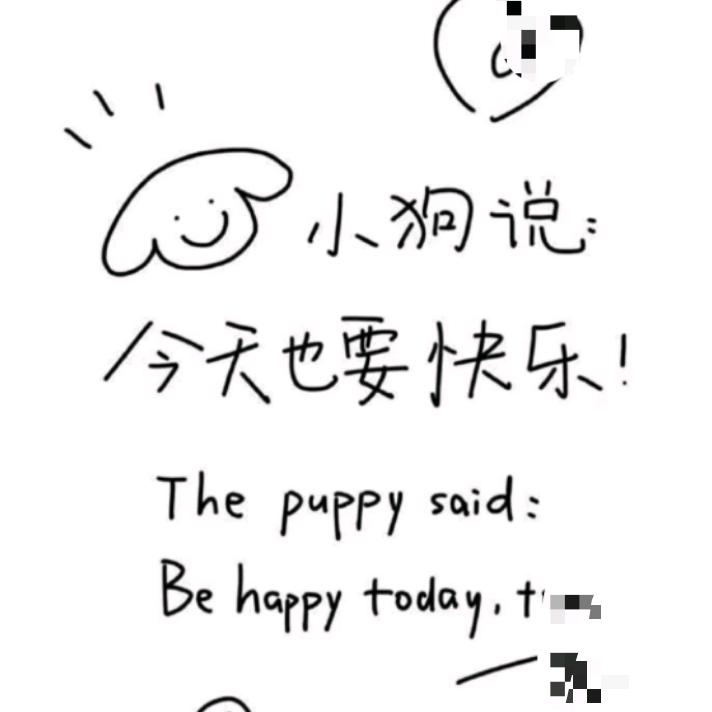 小狗说:
今天也要快乐!
The puppy said:
Be happy today,